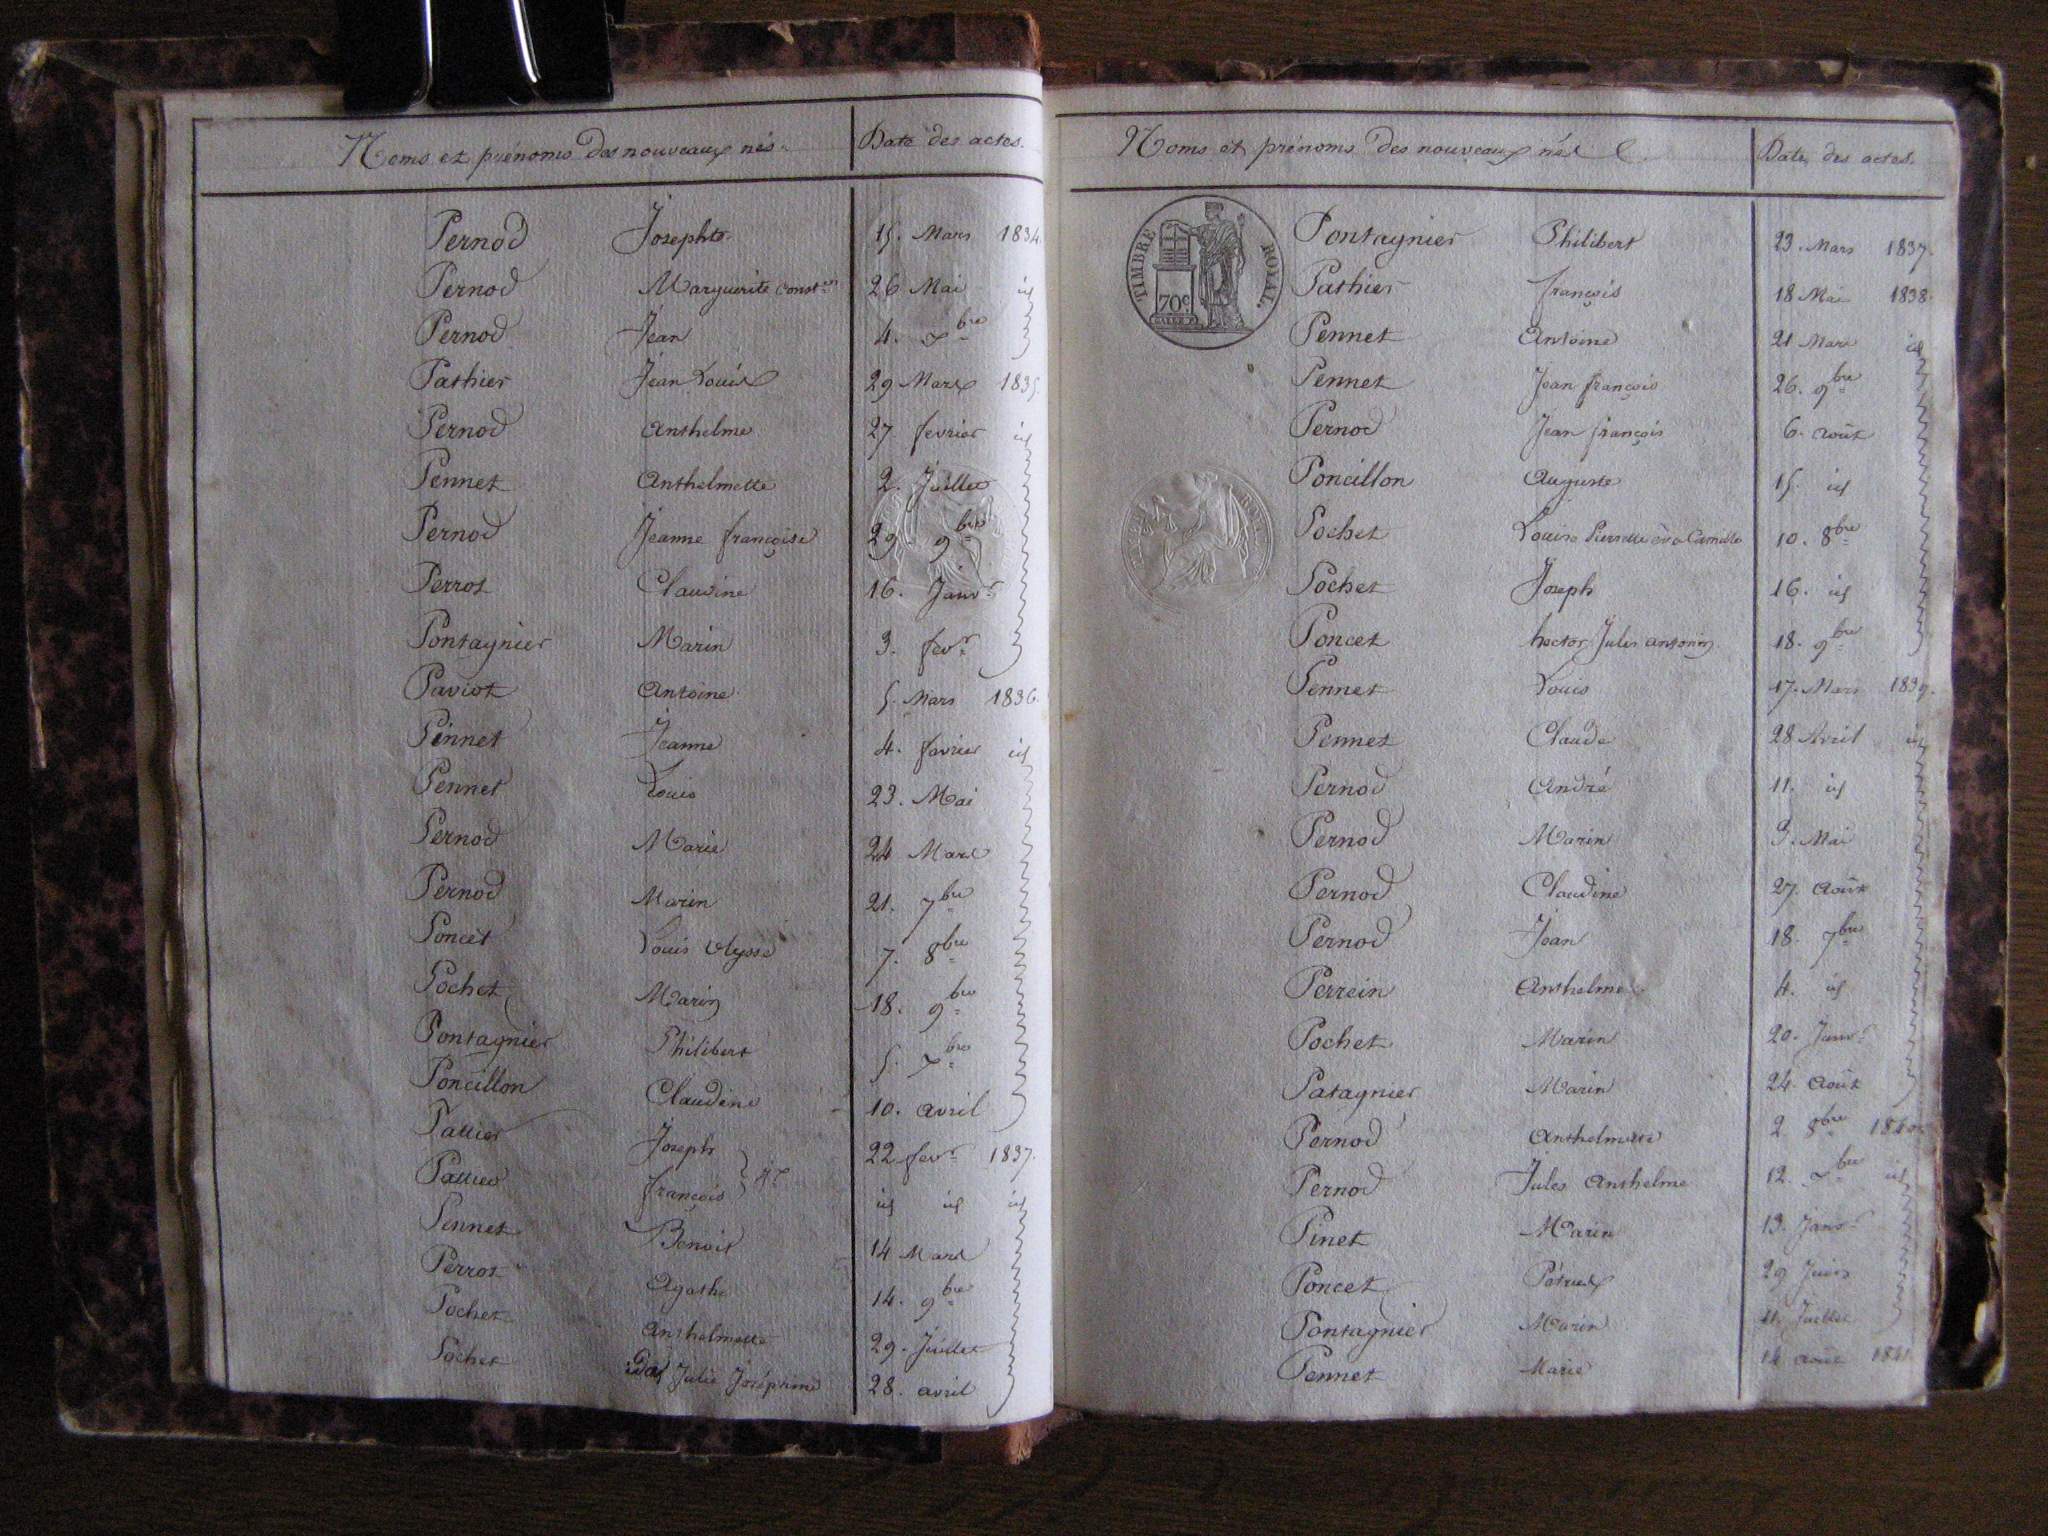 Noms et prénoms des nouveaux nés. Date des actes.
Pernod Josephte. 15. Mars 1834.
Pernod Marguerite Const.en 26 Mai id
Pernod Jean 4. 7bre
Pathier Jean Louis 29 Mars 1835.
Pernod Anthelme 27 fevrier id
Pennet Anthelmette 2. Juillet
Pernod Jeanne françoise 29. 9bre
Perrot Claudine 16. Janvr
Pontagnier Marin 3. fevr
Paviot Antoine 5. Mars 1836.
Pennet Jeanne 4. fevrier id
Pennet Louis 23. Mai
Pernod Marie 24 Mars
Pernod Marin 21. 7bre
Poncet Louis Ulysse 7. 8bre
Pochet Marin 18. 9bre
Pontagnier Philibert 5. 7bre
Poncillon Claudine 10. avril
Pattier Joseph 22 fevr 1837.
Pattier françois id id id
Pennet Benoit 14 Mars
Perrot Agathe 14. 9bre
Pochet Anthelmette 29. Juillet
Pochet Julie Joséphine 28. avril
Noms et prénoms des nouveaux nés Date des actes.
TIMBRE ROYAL.
70c
Pontagnier Philibert 23. Mars 1837.
Pathier françois 18 Mai 1838.
Pennet Antoine 21 Mars id
Pennet Jean françois 26. 9bre
Pernod Jean françois 6. Août
Poncillon Auguste 15. id
Pochet Louise Pierrette Camille 10. 8bre
Pochet Joseph 16. id
Poncet hector Jules antonin 18. 9bre
Pennet Louis 17. Mars 1839.
Pennet Claude 28 Avril id
Pernod André 11. id
Pernod Marin 3. Mai
Pernod Claudine 27. Août
Pernod Jean 18. 7bre
Perrein Anthelme 4. id
Pochet Marin 20. Janvr
Patagnier Marin 24. Août
Pernod Anthelmette 2 8bre 1840.
Pernod Jules Anthelme 12. 7bre id
Pinet Marin 13. Janvr
Poncet Pétrus 29 Juin
Pontagnier Marin 11. Juillet
Pennet Marie 14 août 1841.